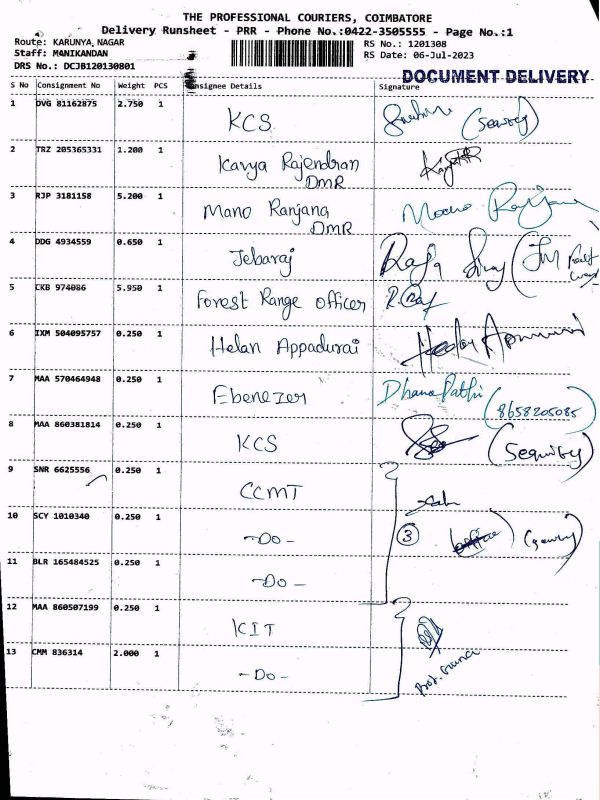 THE PROFESSIONAL COURIERS, COIMBATORE
Delivery Runsheet - PRR - Phone No.:0422-3505555 - Page No.:1
Route: KARUNYA NAGAR RS No.: 1201308
Staff: MANIKANDAN RS Date: 06-Jul-2023
DRS No.: DCJB120130801
DOCUMENT DELIVERY
S No Consignment No Weight PCS Consignee Details Signature
1 DVG 81162875 2.750 1 KCS
2 TRZ 205365331 1.200 1 Kavya Rajendran
DMR
3 RJP 3181158 5.200 1 Mano Ranjana
DMR
4 DDG 4934559 0.650 1 Jebaraj
5 CKB 974086 5.950 1 Forest Range officer
6 IXM 504095757 0.250 1 Helan Appadurai
7 MAA 570464948 0.250 1 Ebenezer DhanaPathi
(8658205085)
8 MAA 860381814 0.250 1 KCS (Sequrity)
9 SNR 6625556 0.250 1 CCMT
10 SCY 1010340 0.250 1 -Do- 3
11 BLR 165484525 0.250 1 -Do-
12 MAA 860507199 0.250 1 KIT
13 CMM 836314 2.000 1 -Do-